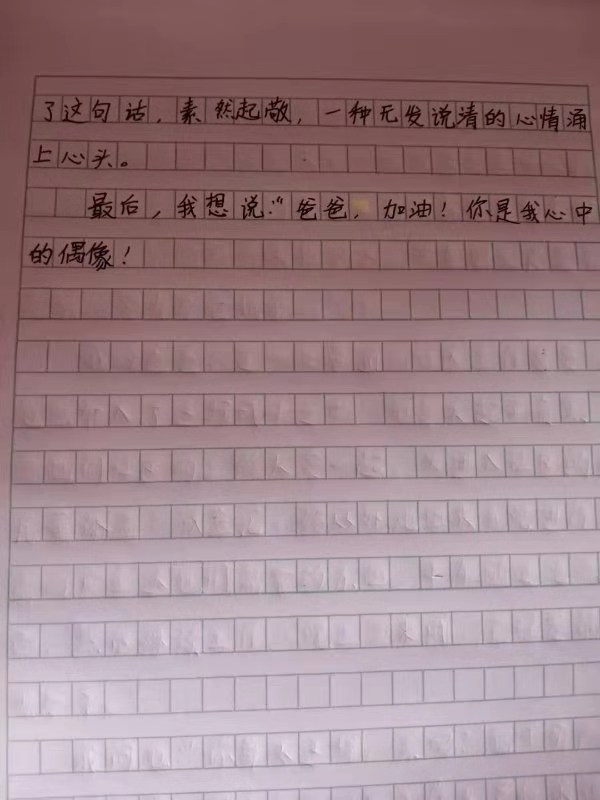 了这句话，素然起敬，一种无发说清的心情涌
上心头。
最后，我想说：“爸爸，加油！你是我心中
的偶像！